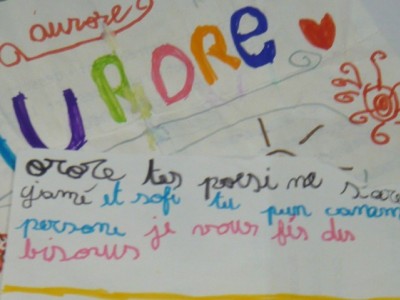 aurore
URORE
orore tes poesi ma s'are
j'amé et sofi tu
persone je vous fés des
bisorus